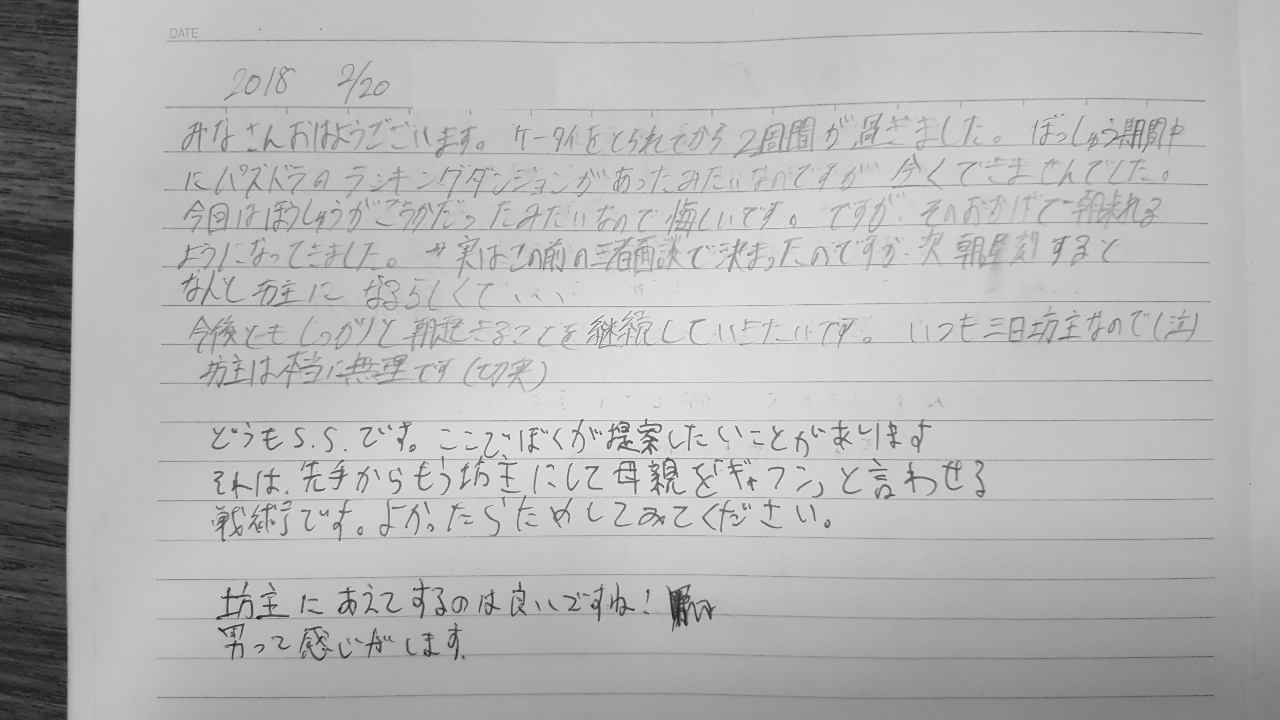 DATE
2018 2/20
みなさんおはようございます。ケータイをとられてから2週間が過ぎました。ぼっしゅう期間中
にパズドラのランキングダンジョンがあったみたいなのですが 全くできませんでした。
今回はほうしゅうがごうかだったみたいなので悔しいです。ですが、そのおかげで朝来れる
ようになってきました。実はこの前の三者面談で決まったのですが、次 朝遅刻すると
なんと坊主に なるらしくて、、、
今後ともしっかりと朝起きることを継続していきたいです。いつも三日坊主なので(泣)
坊主は本当に無理です(切実)
どうもS.S.です。ここでぼくが提案したいことがあります
それは、先手からもう坊主にして母親を「ギャフン」と言わせる
戦術です。よかったらためしてみてください。
坊主にあえてするのは良いですね!
男って感じがします。